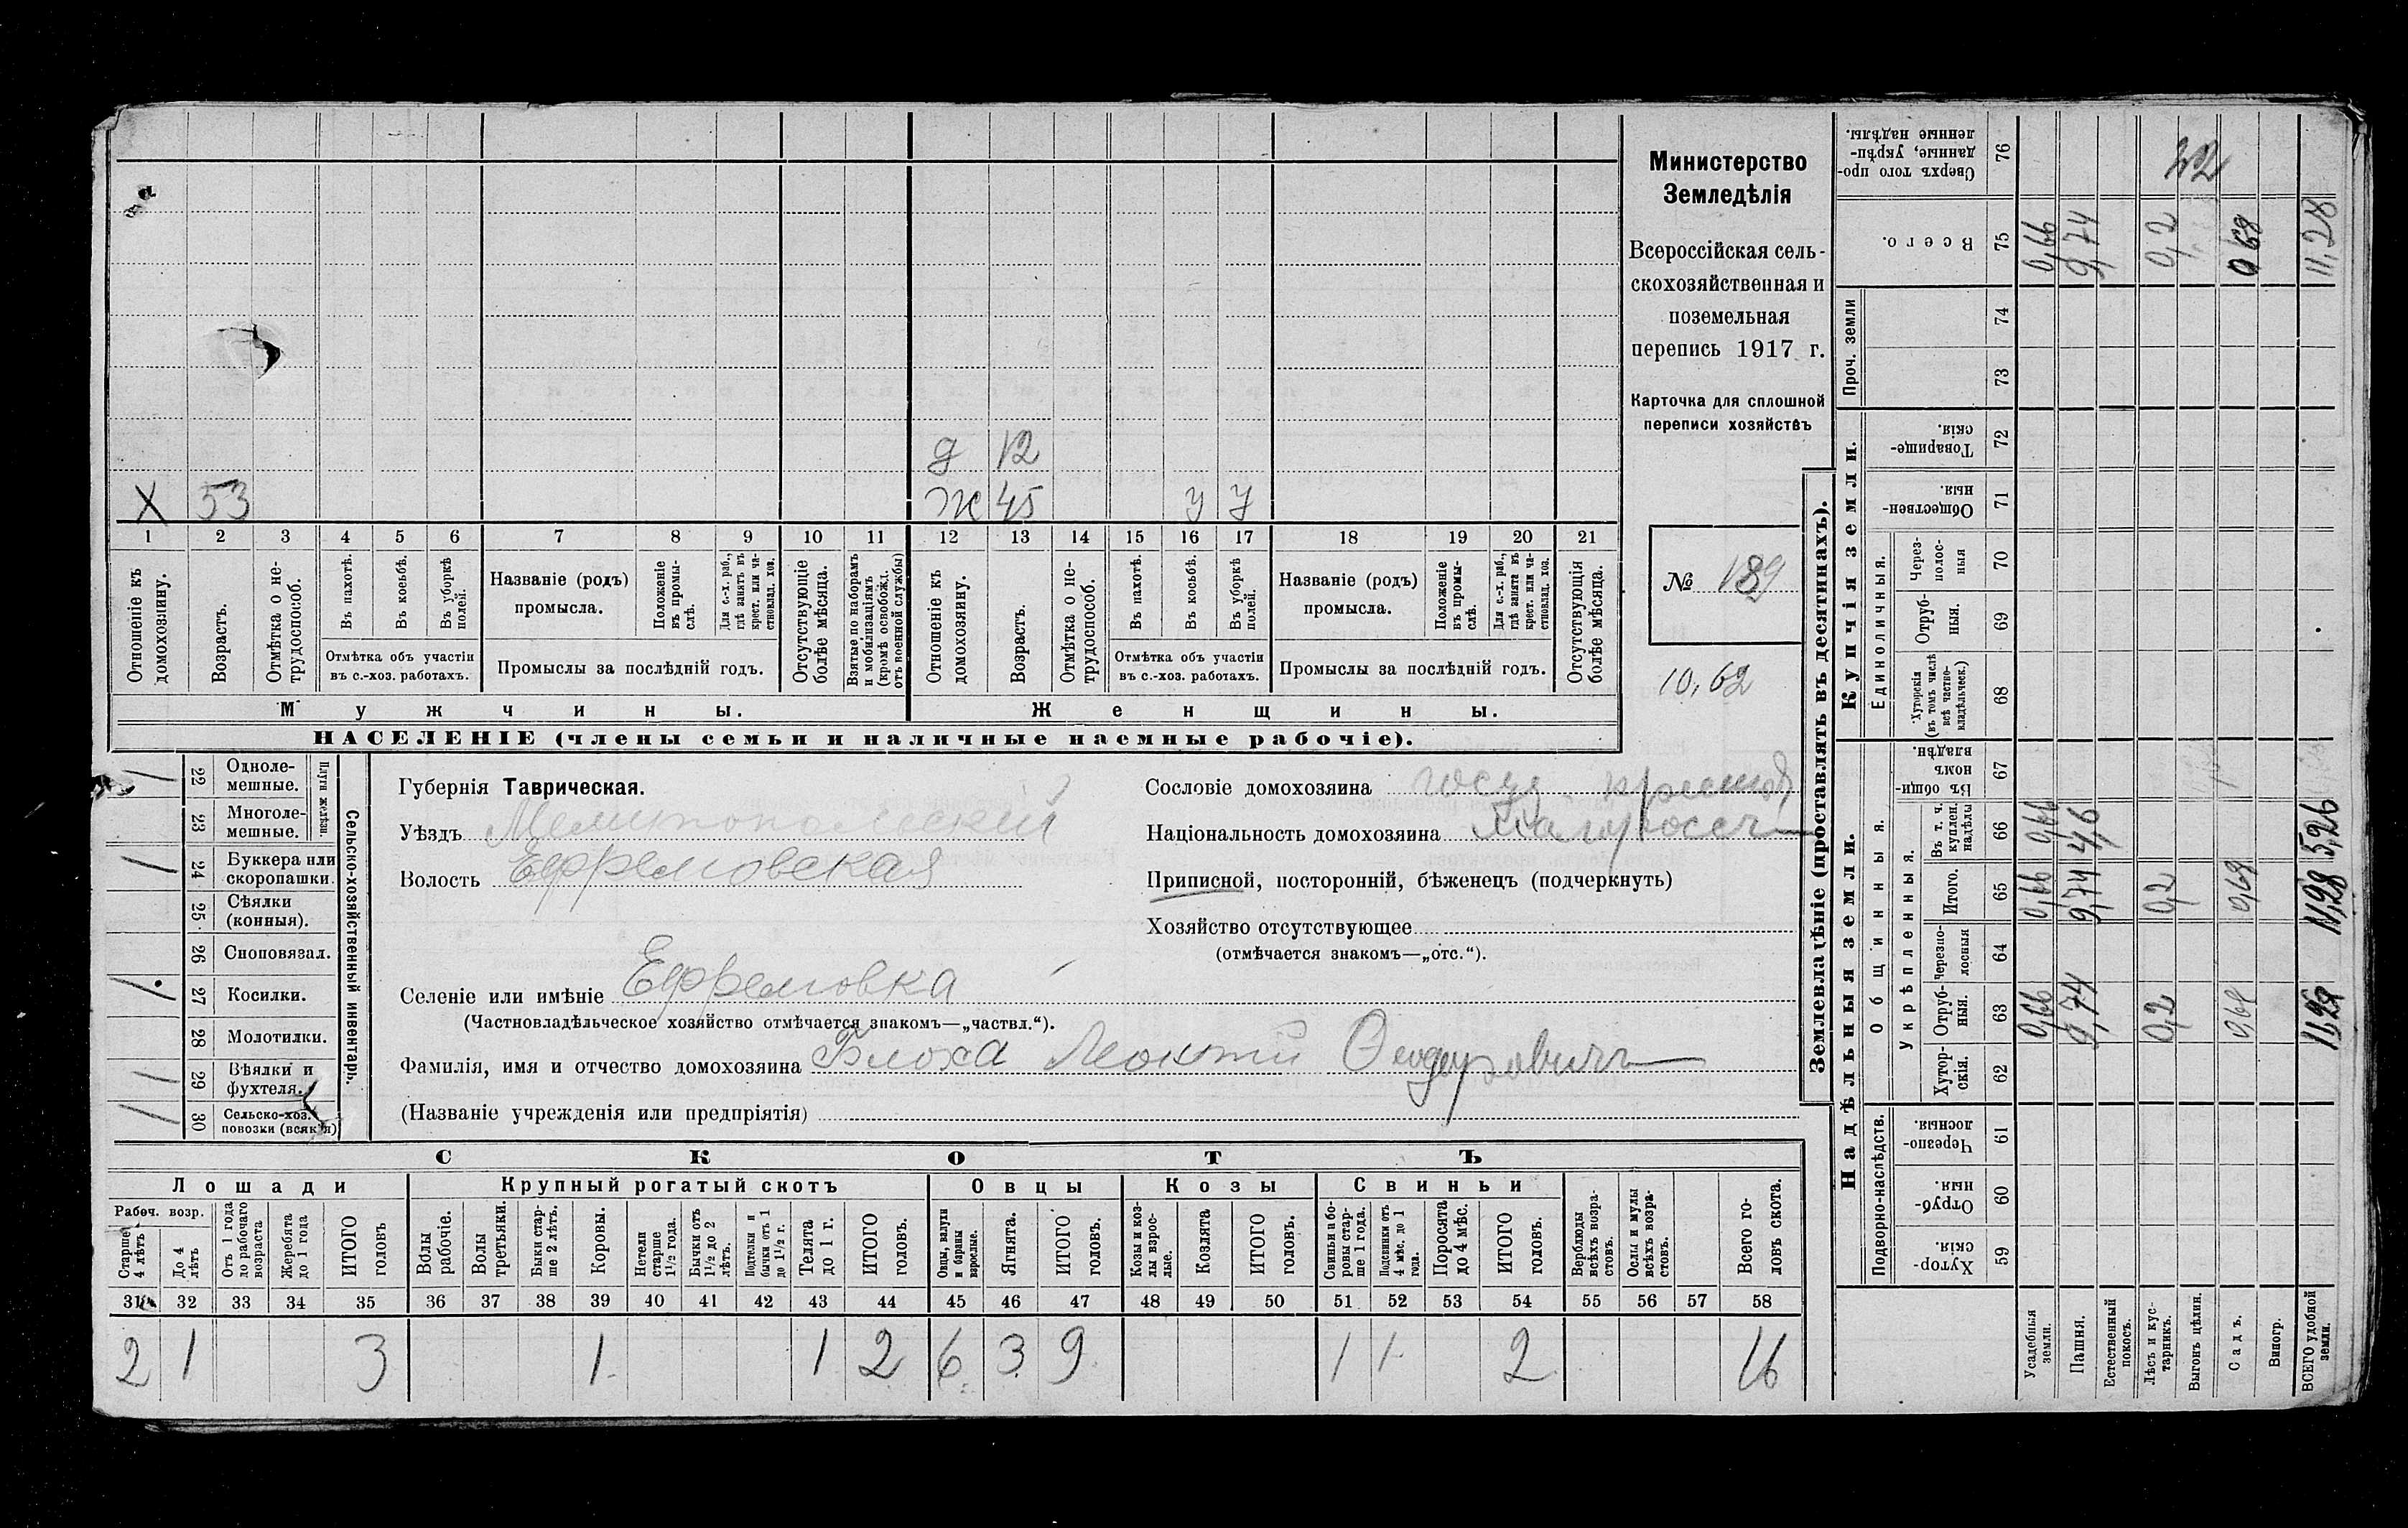 д 12
X 53 Ж 45 у у
1 2 3 4 5 6 7 8 9 10 11 12 13 14 15 16 17 18 19 20 21
Отношеніе къ домохозяину.
Возрастъ.
Отмѣтка о не-
трудоспособ.
Въ пахотѣ.
Въ косьбѣ.
Въ уборкѣ
полей.
Отмѣтка объ участіи
въ с.-хоз. работахъ.
Названіе (родъ)
промысла.
Положеніе
въ промы-
слѣ.
Для с.-х. раб.,
гдѣ занятъ въ
крест. или ча-
стновлад. хоз.
Промыслы за послѣдній годъ.
Отсутствующіе
болѣе мѣсяца.
Взятые по наборамъ
и мобилизаціямъ
(кромѣ освобожд.
отъ военной службы)
Отношеніе къ
домохозяину.
Возрастъ.
Отмѣтка о не-
трудоспособ.
Въ пахотѣ.
Въ косьбѣ.
Въ уборкѣ
полей.
Отмѣтка объ участіи
въ с.-хоз. работахъ.
Названіе (родъ)
промысла.
Положеніе
въ промы-
слѣ.
Для с.-х. раб.,
гдѣ занята въ
крест. или ча-
стновлад. хоз.
Промыслы за послѣдній годъ.
Отсутствующія
болѣе мѣсяца.
Мужчины.
Женщины.
НАСЕЛЕНІЕ (члены семьи и наличные наемные рабочіе).
Министерство
Земледѣлія
Всероссійская сель-
скохозяйственная и
поземельная
перепись 1917 г.
Карточка для сплошной
переписи хозяйствъ
№ 189
10,62
22 Одноле-
мешные.
23 Многоле-
мешные.
Плуги желѣзн.
24 Буккера или
скоропашки.
25 Сѣялки
(конныя).
26 Сноповязал.
27 Косилки.
28 Молотилки.
29 Вѣялки и
фухтеля.
30 Сельско-хоз.
повозки (всякія)
Сельско-хозяйственный инвентарь.
Губернія Таврическая.
Уѣздъ Мелитопольскій
Волость Ефремовская
Селеніе или имѣніе Ефремовка
(Частновладѣльческое хозяйство отмѣчается знакомъ—„частвл.“).
Фамилія, имя и отчество домохозяина Блоха Леонтій Ѳеодоровичъ
(Названіе учрежденія или предпріятія)
Сословіе домохозяина госуд. крестья
Національность домохозяина малороссъ
Приписной, посторонній, бѣженецъ (подчеркнуть)
Хозяйство отсутствующее
(отмѣчается знакомъ—„отс.“).
СКОТЪ
Лошади Крупный рогатый скотъ Овцы Козы Свиньи
Рабоч. возр.
Старше
4 лѣтъ
До 4
лѣтъ
Отъ 1 года
до рабочаго
возраста
Жеребята
до 1 года
ИТОГО
головъ
Волы
рабочіе.
Волы
третьяки.
Быки стар-
ше 2 лѣтъ.
Коровы.
Нетели
старше
1½ года.
Бычки отъ
1½ до 2
лѣтъ.
Подтелки и
бычки отъ 1
до 1½ г.
Телята
до 1 г.
ИТОГО
головъ.
Овцы, валухи
и бараны
взрослые.
Ягнята.
ИТОГО
головъ.
Козы и коз-
лы взрос-
лые.
Козлята
ИТОГО
головъ.
Свиньи и бо-
ровы стар-
ше 1 года.
Подсвинки отъ
4 мѣс. до 1
года.
Поросята
до 4 мѣс.
ИТОГО
головъ.
Верблюды
всѣхъ возра-
стовъ.
Ослы и мулы
всѣхъ возра-
стовъ.
Всего го-
ловъ скота.
31 32 33 34 35 36 37 38 39 40 41 42 43 44 45 46 47 48 49 50 51 52 53 54 55 56 57 58
2 1 3 1 1 2 6 3 9 1 1 2 16
Землевладѣніе (проставлять въ десятинахъ).
Надѣльныя земли.
Купчія земли.
Проч. земли
Подворно-наслѣдств.
Общинныя.
Укрѣпленныя.
Единоличныя.
Хутор-
скія. 59
Отруб-
ныя. 60
Черезпо-
лосныя. 61
Хутор-
скія. 62
Отруб-
ныя. 63
Черезпо-
лосныя 64
Итого. 65
Въ т. ч.
куплен.
надѣлы 66
Въ общин-
номъ
владѣн. 67
Хуторскія
(въ томъ числѣ
всѣ частно-
владѣльческ.) 68
Отруб-
ныя. 69
Через-
полос-
ныя 70
Обществен-
ныя. 71
Товарище-
скія. 72
73
74
Всего. 75
Сверхъ того про-
данные, укрѣп-
ленные надѣлы. 76
Усадебныя
земли. 0,66 0,66 0,66 0,66
Пашня. 9,74 9,74 4,6 9,74
Естественный
покосъ.
Лѣсъ и кус-
тарникъ. 0,2 0,2 0,2
Выгонъ цѣлин.
Садъ. 0,68 0,68 0,68
Виногр.
ВСЕГО удобной
земли. 11,28 11,28 5,26 11,28